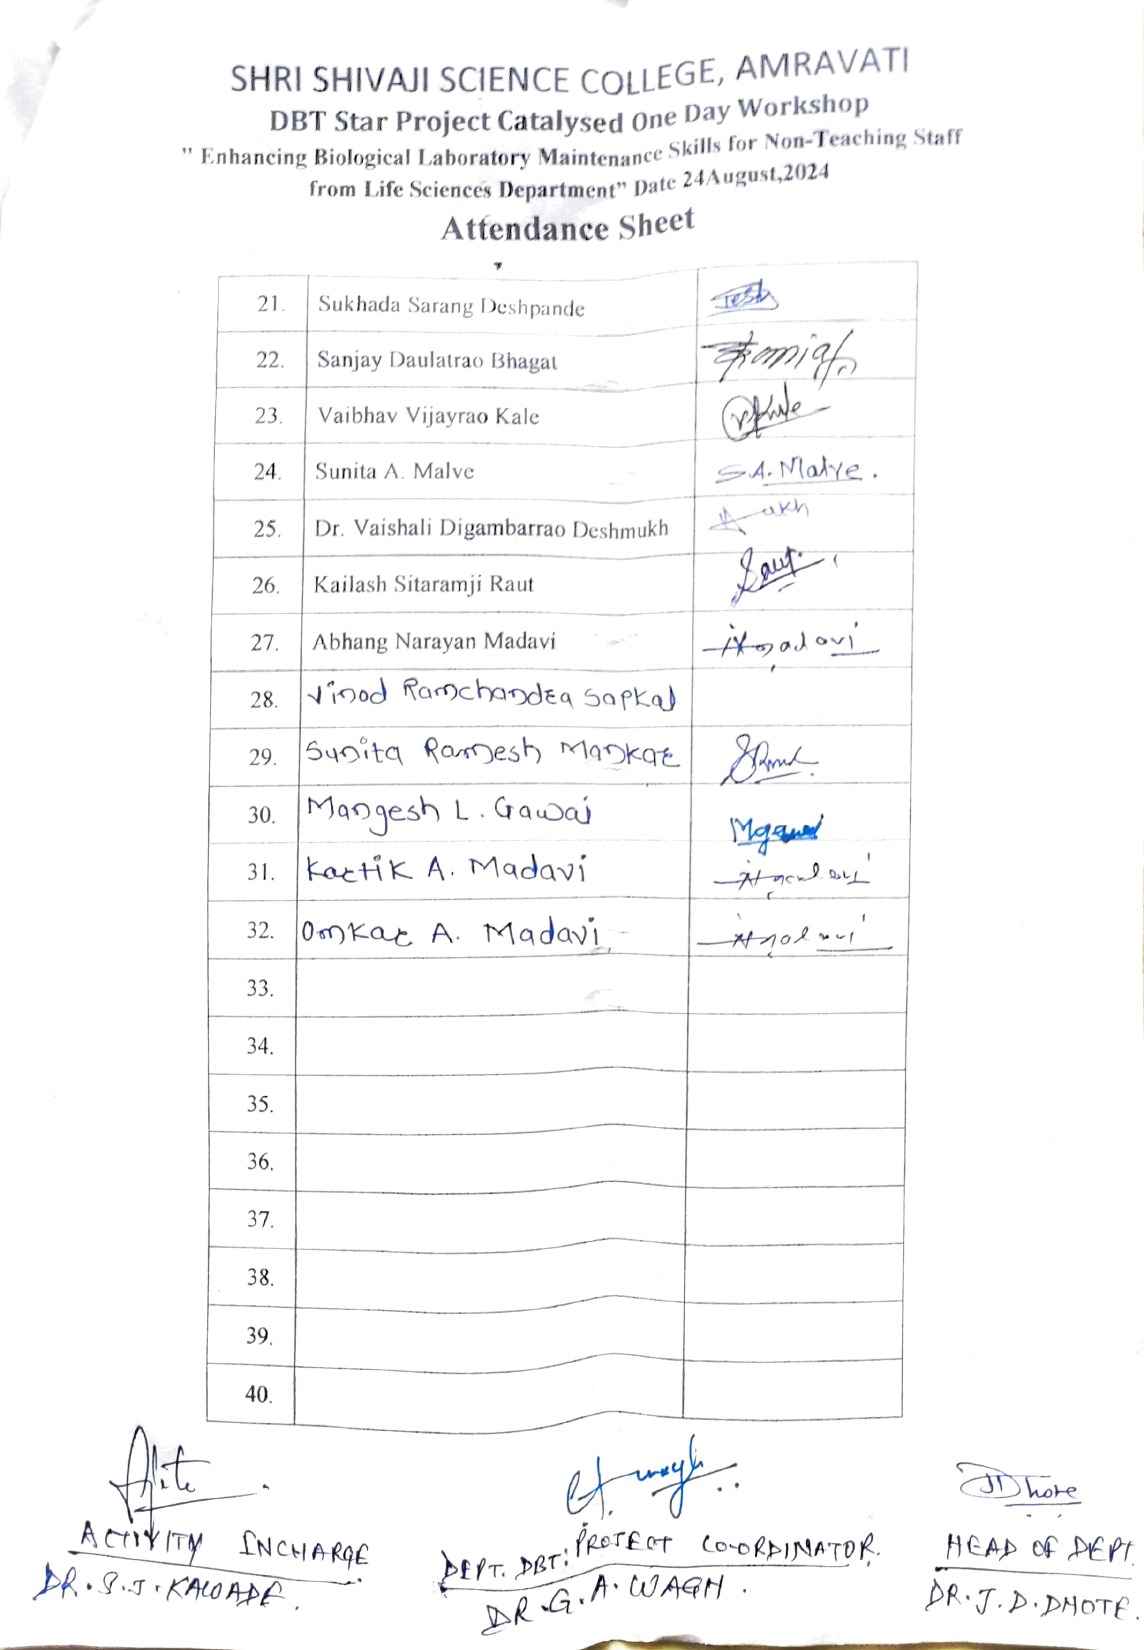 SHRI SHIVAJI SCIENCE COLLEGE, AMRAVATI
DBT Star Project Catalysed One Day Workshop
" Enhancing Biological Laboratory Maintenance Skills for Non-Teaching Staff
from Life Sciences Department” Date 24August,2024
Attendance Sheet
21. Sukhada Sarang Deshpande
22. Sanjay Daulatrao Bhagat
23. Vaibhav Vijayrao Kale
24. Sunita A. Malve S.A. Malve.
25. Dr. Vaishali Digambarrao Deshmukh
26. Kailash Sitaramji Raut
27. Abhang Narayan Madavi
28. Vinod Ramchandra Sapkal
29. Sunita Ramesh Mankar
30. Mangesh L. Gawai
31. Kartik A. Madavi
32. Omkar A. Madavi
33.
34.
35.
36.
37.
38.
39.
40.
JDDhote
ACTIVITY INCHARGE DEPT. DBT: PROJECT CO-ORDINATOR. HEAD OF DEPT.
DR. S. J. KAWADE. DR. G. A. WAGH. DR. J. D. DHOTE.